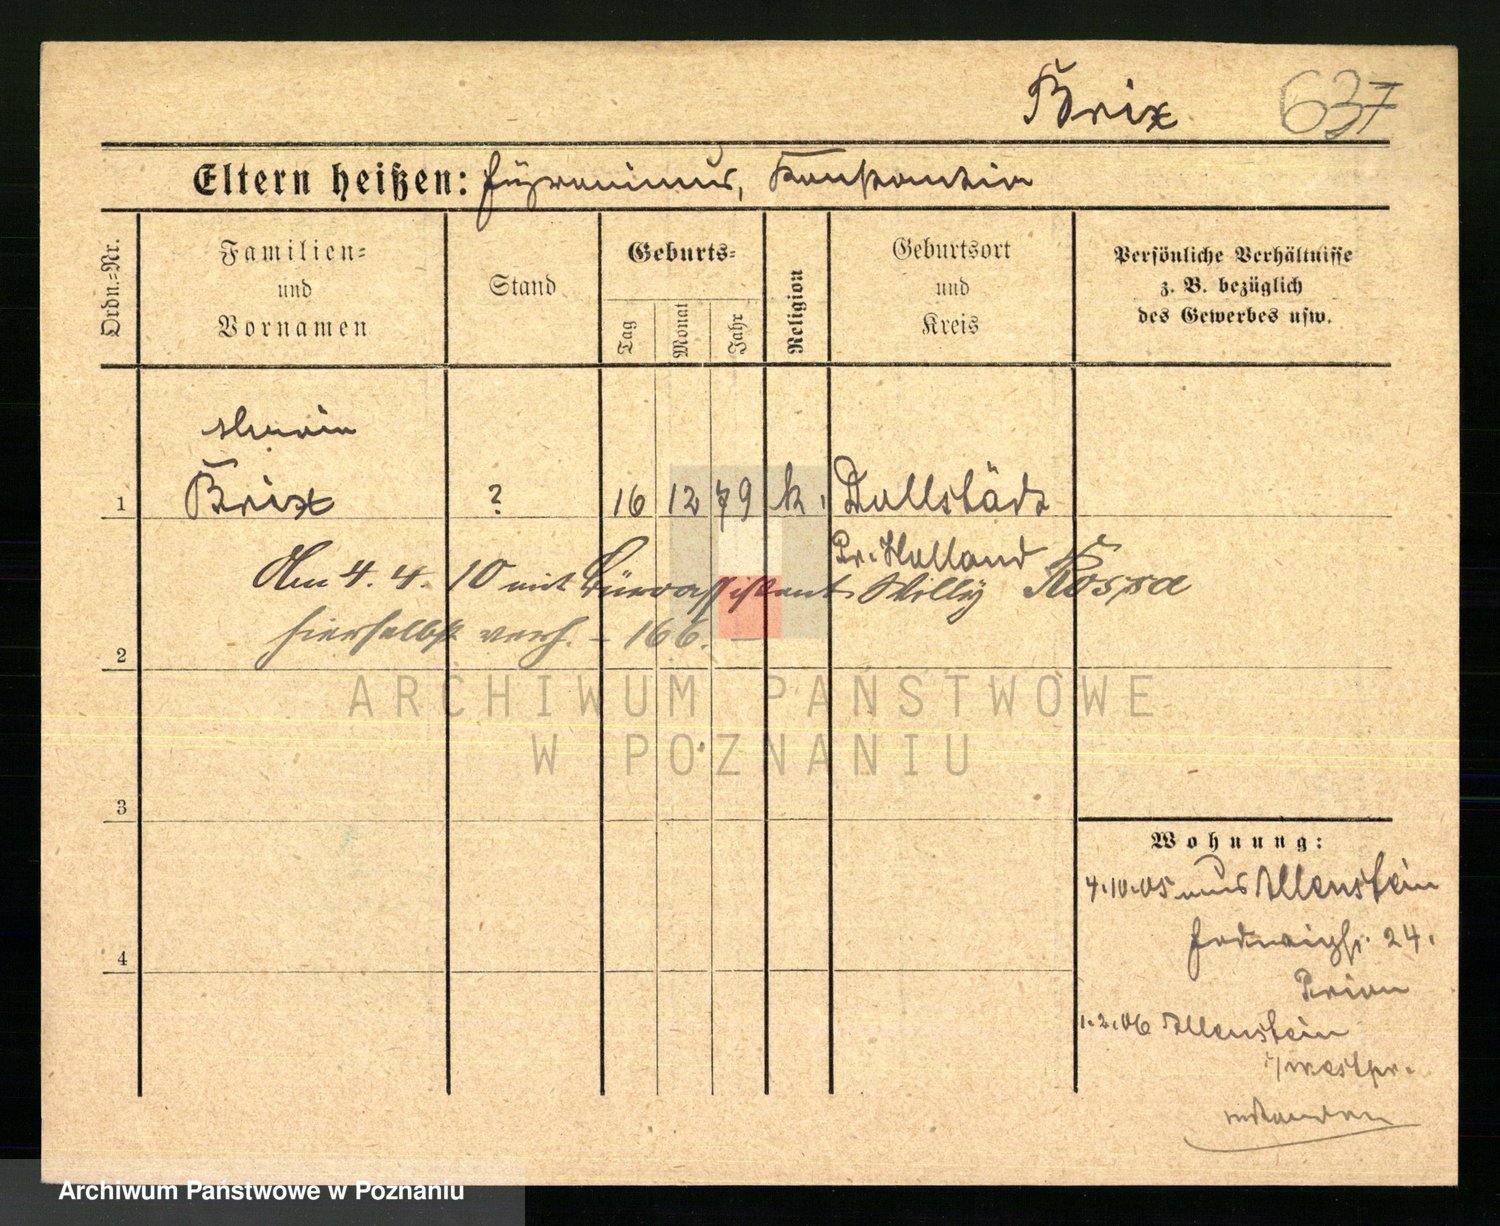 Brix 637
Eltern heißen: Hyronimus, Konstantin
Ordn.-Nr.
Familien-
und
Vornamen
Stand
Geburts-
Tag
Monat
Jahr
Religion
Geburtsort
und
Kreis
Persönliche Verhältnisse
z. B. bezüglich
des Gewerbes usw.
1 Brix ? 16 12 79 k. Dollstädt
Pr. Holland
Am 4. 4. 10 mit Büroassistent Willy Kospa
hierselbst verh. – 166. –
2
ARCHIWUM PAŃSTWOWE
W POZNANIU
3
4
Wohnung:
4.10.05 aus Allenstein
Hedwigstr. 24.
1.2.06 Allenstein
i/westpr.
Archiwum Państwowe w Poznaniu